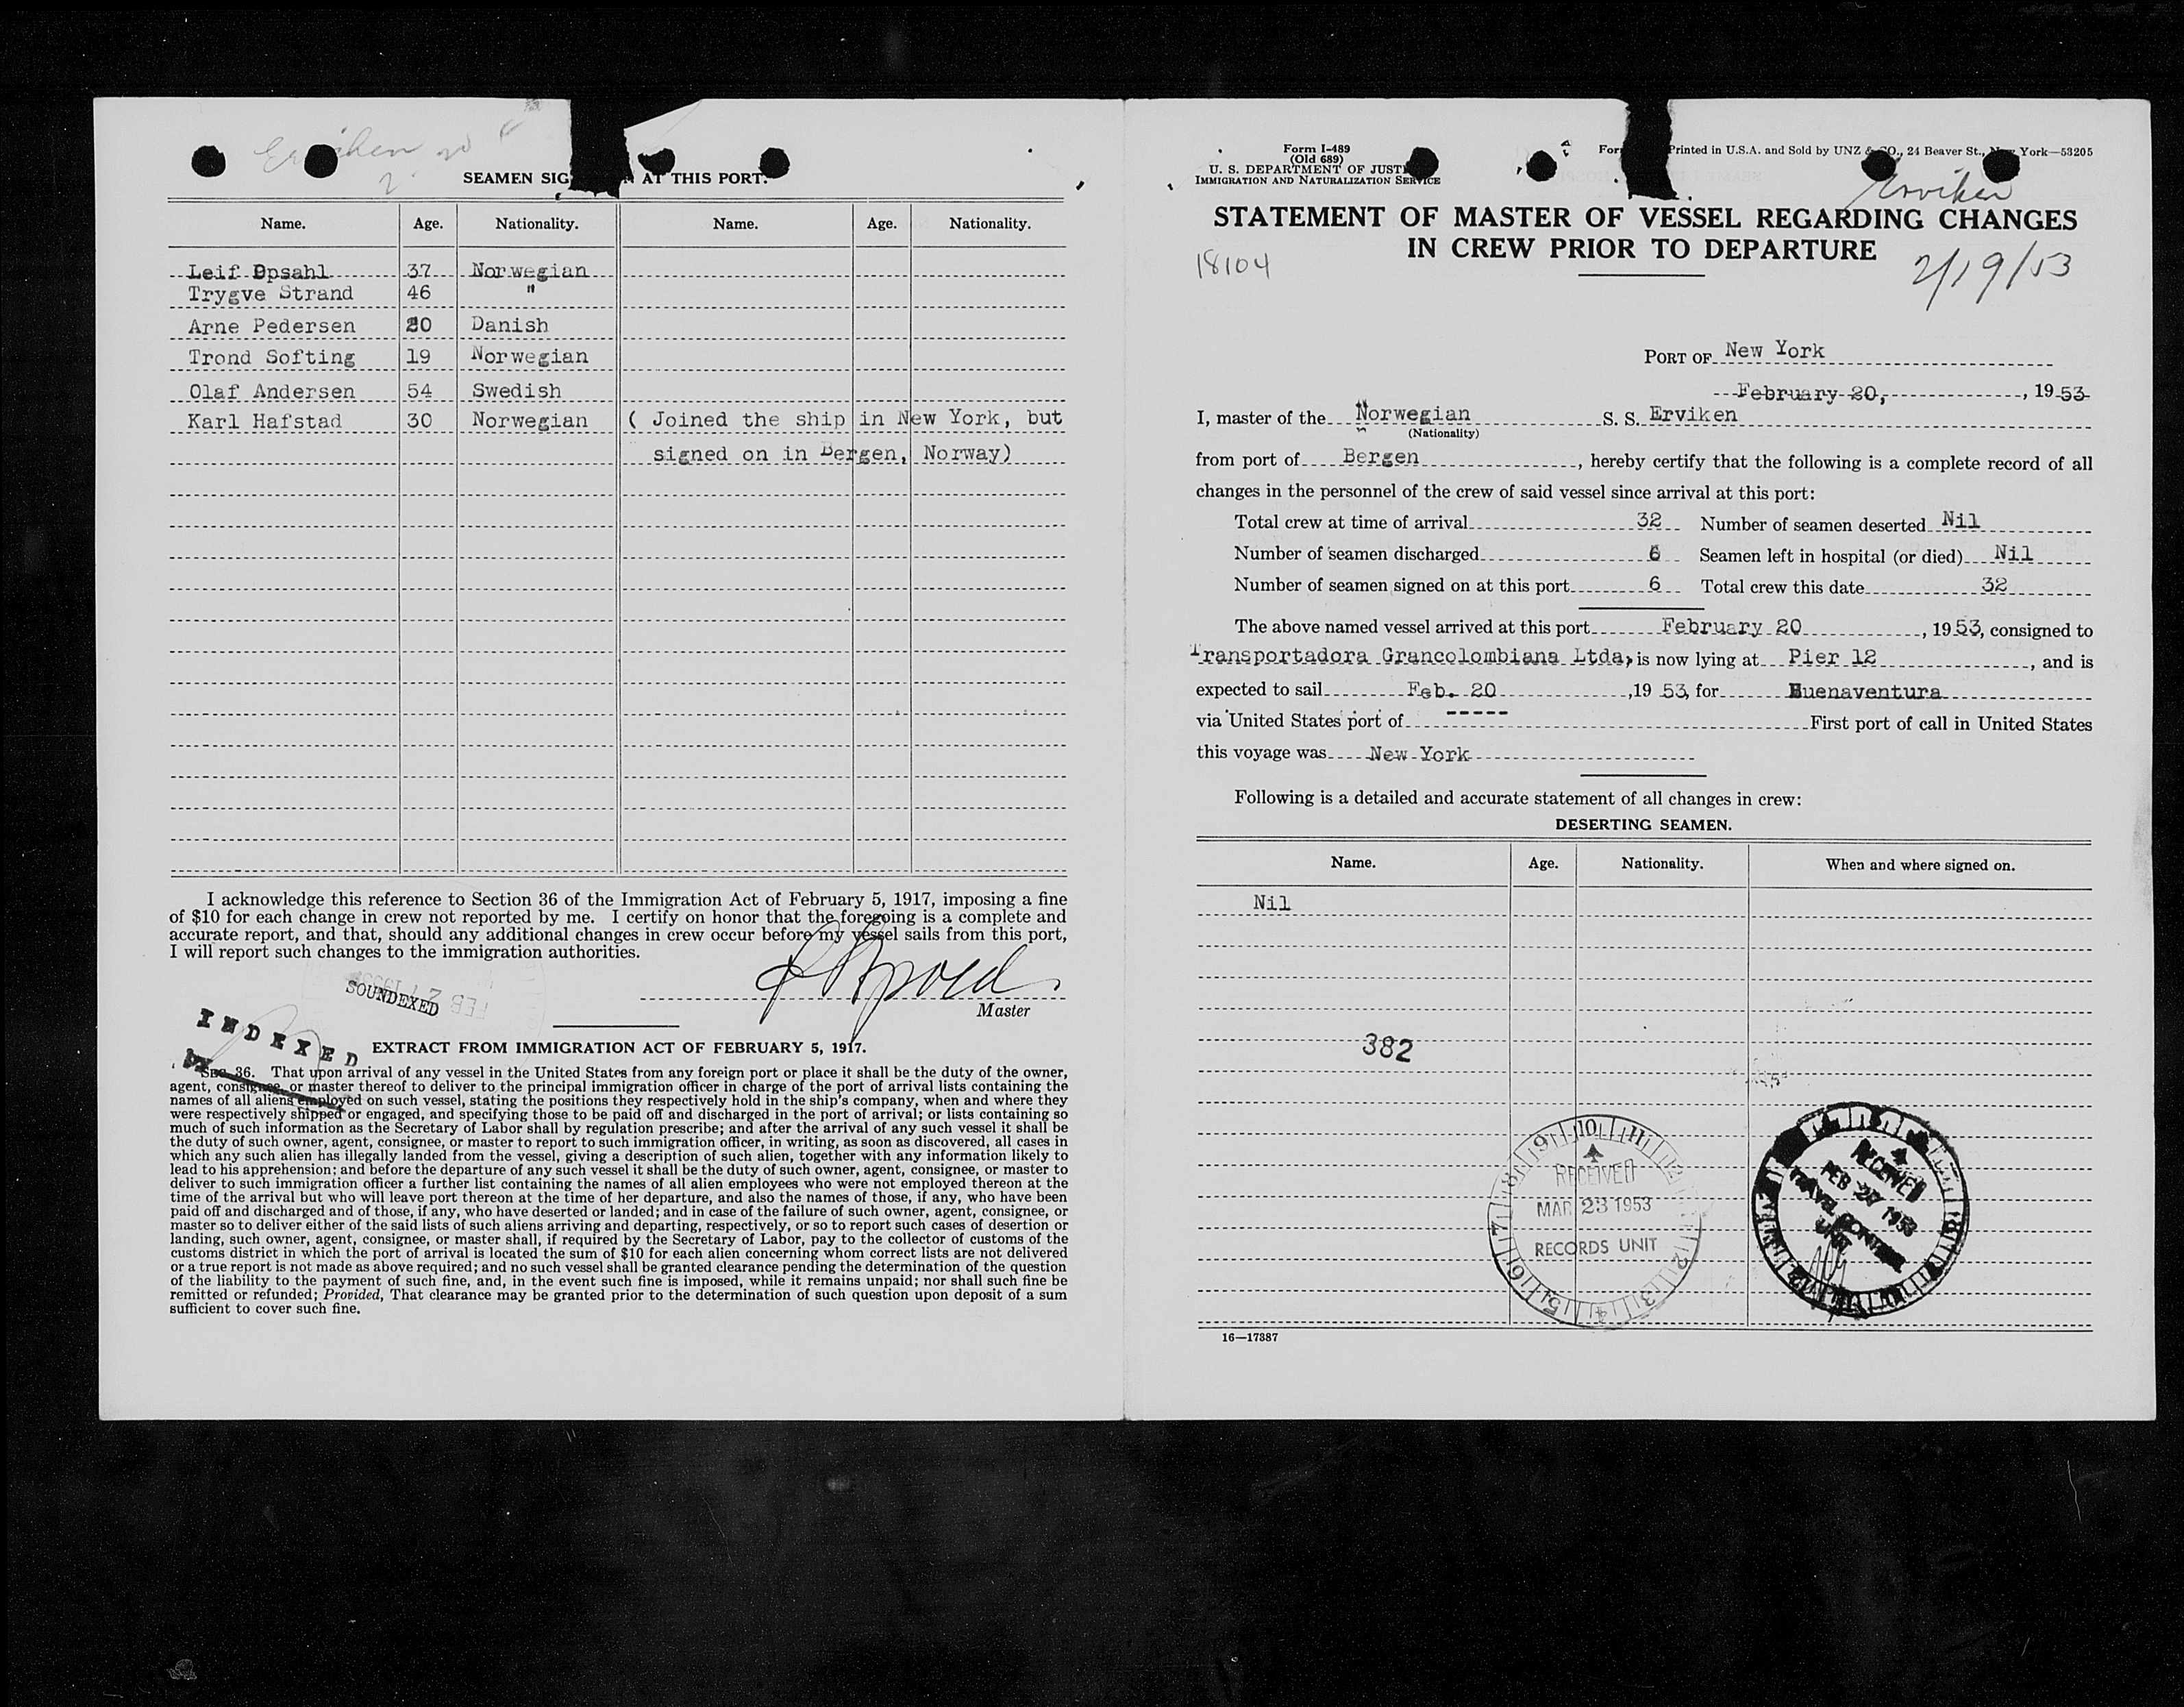 Erviken
2
SEAMEN SIG AT THIS PORT.
Name. Age. Nationality. Name. Age. Nationality.
Leif Opsahl 37 Norwegian
Trygve Strand 46 "
Arne Pedersen 20 Danish
Trond Softing 19 Norwegian
Olaf Andersen 54 Swedish
Karl Hafstad 30 Norwegian ( Joined the ship in New York, but
signed on in Bergen, Norway)
I acknowledge this reference to Section 36 of the Immigration Act of February 5, 1917, imposing a fine
of $10 for each change in crew not reported by me. I certify on honor that the foregoing is a complete and
accurate report, and that, should any additional changes in crew occur before my vessel sails from this port,
I will report such changes to the immigration authorities.
SOUNDEXED
FEB 27
Master
INDEXED
EXTRACT FROM IMMIGRATION ACT OF FEBRUARY 5, 1917.
SEC. 36. That upon arrival of any vessel in the United States from any foreign port or place it shall be the duty of the owner,
agent, consignee, or master thereof to deliver to the principal immigration officer in charge of the port of arrival lists containing the
names of all aliens employed on such vessel, stating the positions they respectively hold in the ship's company, when and where they
were respectively shipped or engaged, and specifying those to be paid off and discharged in the port of arrival; or lists containing so
much of such information as the Secretary of Labor shall by regulation prescribe; and after the arrival of any such vessel it shall be
the duty of such owner, agent, consignee, or master to report to such immigration officer, in writing, as soon as discovered, all cases in
which any such alien has illegally landed from the vessel, giving a description of such alien, together with any information likely to
lead to his apprehension; and before the departure of any such vessel it shall be the duty of such owner, agent, consignee, or master to
deliver to such immigration officer a further list containing the names of all alien employees who were not employed thereon at the
time of the arrival but who will leave port thereon at the time of her departure, and also the names of those, if any, who have been
paid off and discharged and of those, if any, who have deserted or landed; and in case of the failure of such owner, agent, consignee, or
master so to deliver either of the said lists of such aliens arriving and departing, respectively, or so to report such cases of desertion or
landing, such owner, agent, consignee, or master shall, if required by the Secretary of Labor, pay to the collector of customs of the
customs district in which the port of arrival is located the sum of $10 for each alien concerning whom correct lists are not delivered
or a true report is not made as above required; and no such vessel shall be granted clearance pending the determination of the question
of the liability to the payment of such fine, and, in the event such fine is imposed, while it remains unpaid; nor shall such fine be
remitted or refunded; Provided, That clearance may be granted prior to the determination of such question upon deposit of a sum
sufficient to cover such fine.
Form I-489
(Old 689)
U. S. DEPARTMENT OF JUSTI
IMMIGRATION AND NATURALIZATION SERVICE
For Printed in U.S.A. and Sold by UNZ & CO., 24 Beaver St., New York—53205
Erviken
STATEMENT OF MASTER OF VESSEL REGARDING CHANGES
IN CREW PRIOR TO DEPARTURE
18104
2/19/53
PORT OF New York
February 20, , 1953
I, master of the Norwegian S. S. Erviken
(Nationality)
from port of Bergen , hereby certify that the following is a complete record of all
changes in the personnel of the crew of said vessel since arrival at this port:
Total crew at time of arrival 32 Number of seamen deserted Nil
Number of seamen discharged 6 Seamen left in hospital (or died) Nil
Number of seamen signed on at this port 6 Total crew this date 32
The above named vessel arrived at this port February 20 , 1953, consigned to
Transportadora Grancolombiana Ltda, is now lying at Pier 12 , and is
expected to sail Feb. 20 ,19 53, for Buenaventura
via United States port of ----- First port of call in United States
this voyage was New York
Following is a detailed and accurate statement of all changes in crew:
DESERTING SEAMEN.
Name. Age. Nationality. When and where signed on.
Nil
382
9 10 11 12
8 RECEIVED
MAR 23 1953
7 RECORDS UNIT 2
6 5 4 3
RECEIVED
FEB 27 1953
TRAVEL CONTROL
UNIT
16—17387